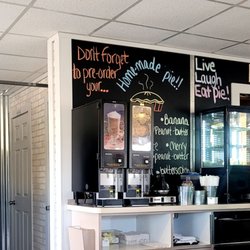 Don't Forget
to pre-order
your...
Home-made pie!!
Banana
Peanut-butter
Cherry
Peanut-butter
butterscotch
Live
Laugh
Eat Pie!